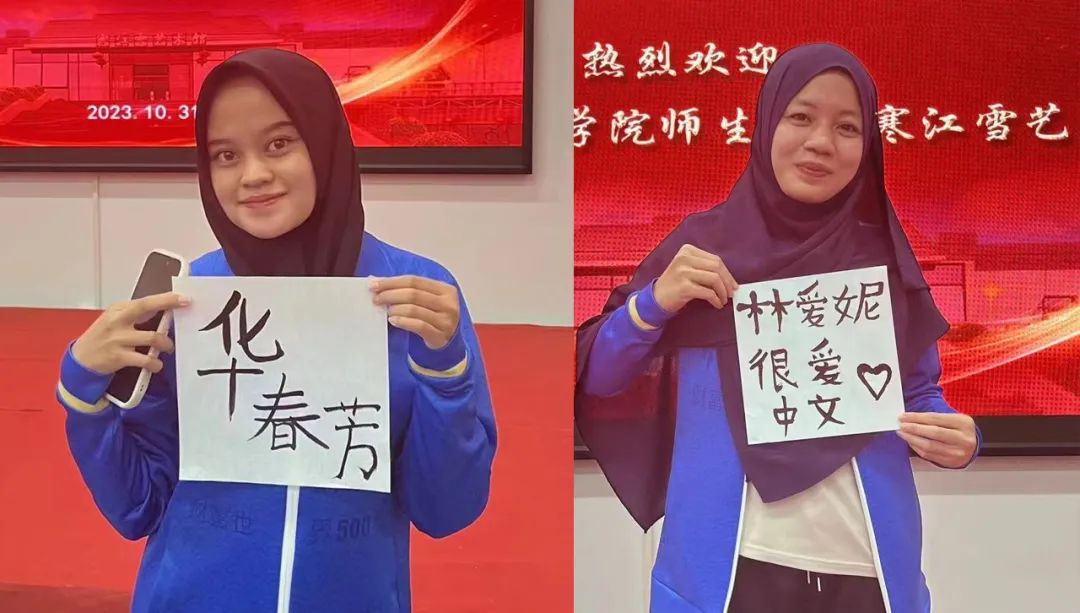 2023.10.31
华
春芳
热烈欢迎
学院师生
寒江雪艺
林爱妮
很爱
中文
500